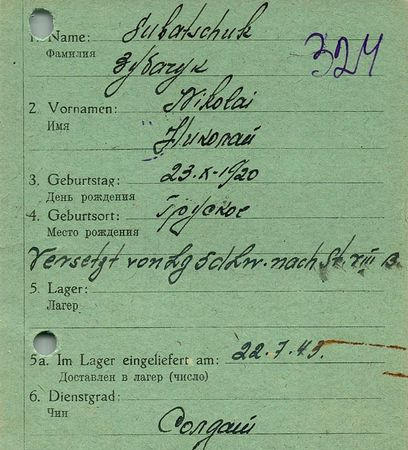 1. Name: Subatschuk
Фамилия
Зубачук
324
2. Vornamen: Nikolai
Имя
Николай
3. Geburtstag: 23.X-1920
День рождения
4. Geburtsort: Груское
Место рождения
Versetzt von Lg Sdlw. nach St. XIII B.
5. Lager:
Лагер
5a. Im Lager eingeliefert am: 22.7.43.
Доставлен в лагер (число)
6. Dienstgrad:
Чин
Солдат